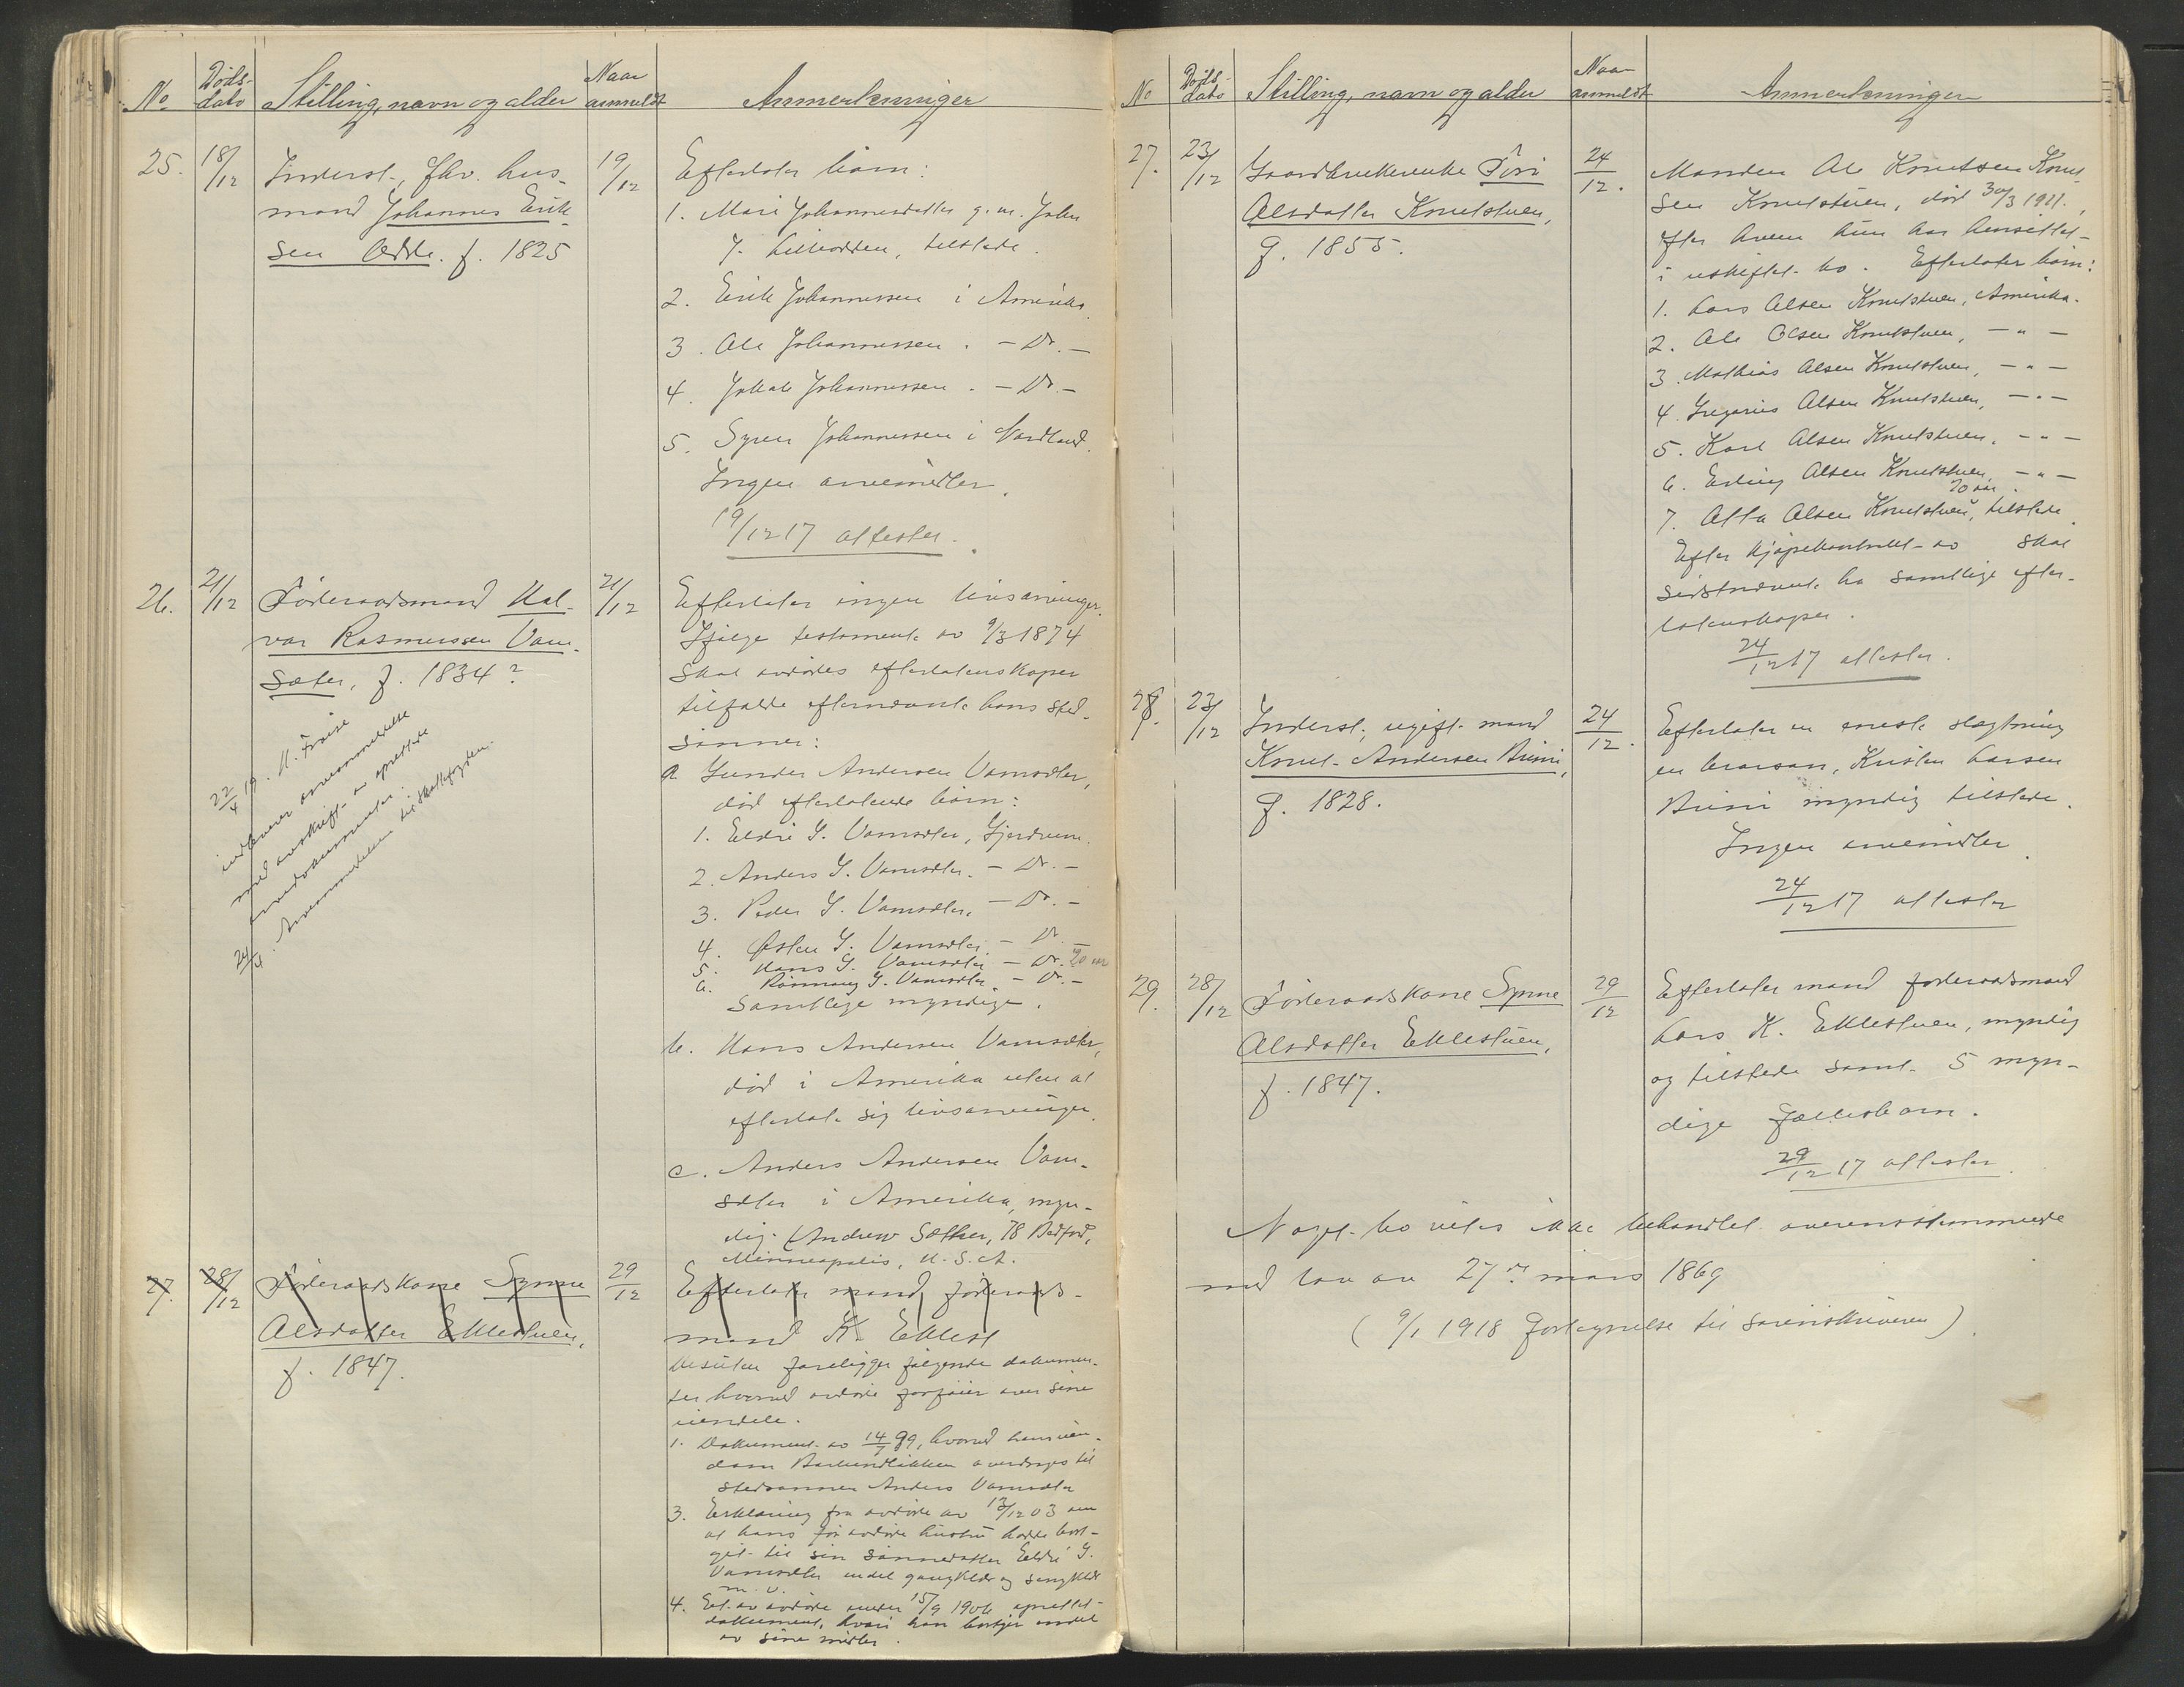 No
Døds-
dato
Stilling, navn og alder
Naar
anmeldt
Anmerkninger
25.
18/12
Inderst, fhv. hus-
mand Johannes Erik-
sen Odde. f. 1825
19/12
Efterlater barn:
1. Mari Johannesdatter g. m. John
J. Lilleodden, tilstede.
2. Erik Johannessen i Amerika.
3. Ole Johannessen. - Do. -
4. Jakob Johannessen. - Do. -
5. Syver Johannessen i Nordland.
Ingen arvemidler.
19/12 17 attester.
26.
21/12
Føderaadsmand Hal-
vor Rasmussen Vam-
sæter, f. 1834?
21/12
Efterlater ingen livsarvinger.
Ifølge testamente av 9/3 1874
skal avdødes efterlatenskaper
tilfalde efternævnte hans sted-
sønner:
a Gunder Andersen Vamsæter,
død efterlatende barn:
1. Eldri G. Vamsæter, Gjerdrum.
2. Anders G. Vamsæter. - Do. -
3. Peder G. Vamsæter. - Do. -
4. Østen G. Vamsæter - Do. -
5. Hans G. Vamsæter - Do. 20 aar
6. Rønnaug G. Vamsæter. - Do. -
Samtlige myndige.
b. Hans Andersen Vamsæter,
død i Amerika uten at
efterlate sig livsarvinger.
c. Anders Andersen Vam-
sæter i Amerika, myn-
dig. (Andrew Sæther, 78 Bedford,
Minneapolis, U. S. A.
22/4 19. H. Frøise
indleverer arveanmeldelse
med avskrift av oprettede
arvedokumenter.
24/4. Arveanmeldelsen til skattefogden.
27.
28/12
Føderaadskone Synne
Olsdatter Eklestuen,
f. 1847.
29/12
Efterlater mand, føderaads-
mand K. Eklest
Desuten foreligger følgende dokumen-
ter hvorved avdøde forføier over sine
eiendele.
1. Dokument av 14/7 99, hvorved hans eien-
dom overdrages til
stedsønnen Anders Vamsæter
3. Erklæring fra avdøde av 13/12 03 om
at hans før avdøde hustru hadde bort-
git til sin sønnedatter Eldri G.
Vamsæter endel gangklær og sengklær
m. v.
4. Et av avdøde under 15/9 1906 oprettet
dokument, hvori han bortgir endel
av sine midler.
No
Døds-
dato
Stilling, navn og alder
Naar
anmeldt
Anmerkninger
27.
23/12
Gaardbrukerenke Jøri
Olsdatter Knutstuen,
f. 1855.
24/12.
Manden Ole Knutsen Knut-
sen Knutstuen, død 30/3 1911.,
efter hvem hun har hensittet
i uskiftet bo. Efterlater barn:
1. Lars Olsen Knutstuen, Amerika.
2. Ole Olsen Knutstuen, - " -
3. Mathias Olsen Knutstuen, - " -
4. Gregorius Olsen Knutstuen, - " -
5. Karl Olsen Knutstuen, - " -
6. Erling Olsen Knutstuen, - " -
20 aar
7. Olla Olsen Knutstuen, tilstede.
Efter kjøpekontrakt av skal
sidstnævnte ha samtlige efter-
latenskaper.
24/12 17 attester.
28.
23/12
Inderst, ugift mand
Knut Andersen Brimi,
f. 1828.
24/12.
Efterlater en eneste slægtning
en brorsøn, Kristen Larsen
Brimi myndig tilstede.
Ingen arvemidler.
24/12 17 attester
29.
28/12
Føderaadskone Synne
Olsdatter Eklestuen,
f. 1847.
29/12
Efterlater mand føderaadsmand
Lars K. Eklestuen, myndig
og tilstede samt 5 myn-
dige fællesbarn.
29/12 17 attester.
Noget bo vites ikke behandlet overensstemmende
med lov av 27de mars 1869
( 9/1 1918 fortegnelse til sorenskriveren ).